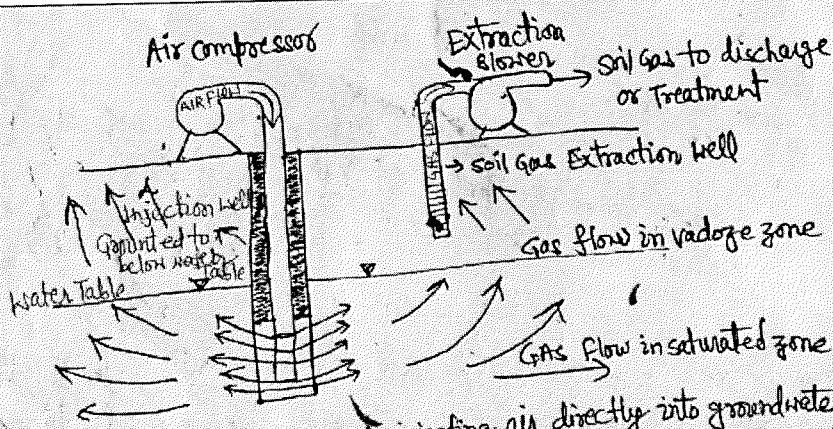 Air compressor
Extraction
Blower
AIR FLOW
Soil Gas to discharge
or Treatment
GAS FLOW
Soil Gas Extraction well
Injection well
Grounted to
below water
Table
Gas flow in vadoze zone
Water Table
GAs Flow in saturated zone
air directly into groundwate